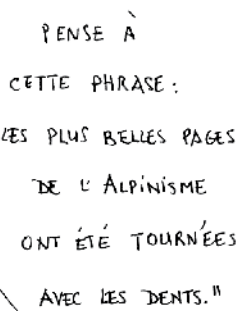 PENSE À
CETTE PHRASE :
LES PLUS BELLES PAGES
DE L'ALPINISME
ONT ÉTÉ TOURNÉES
AVEC LES DENTS."